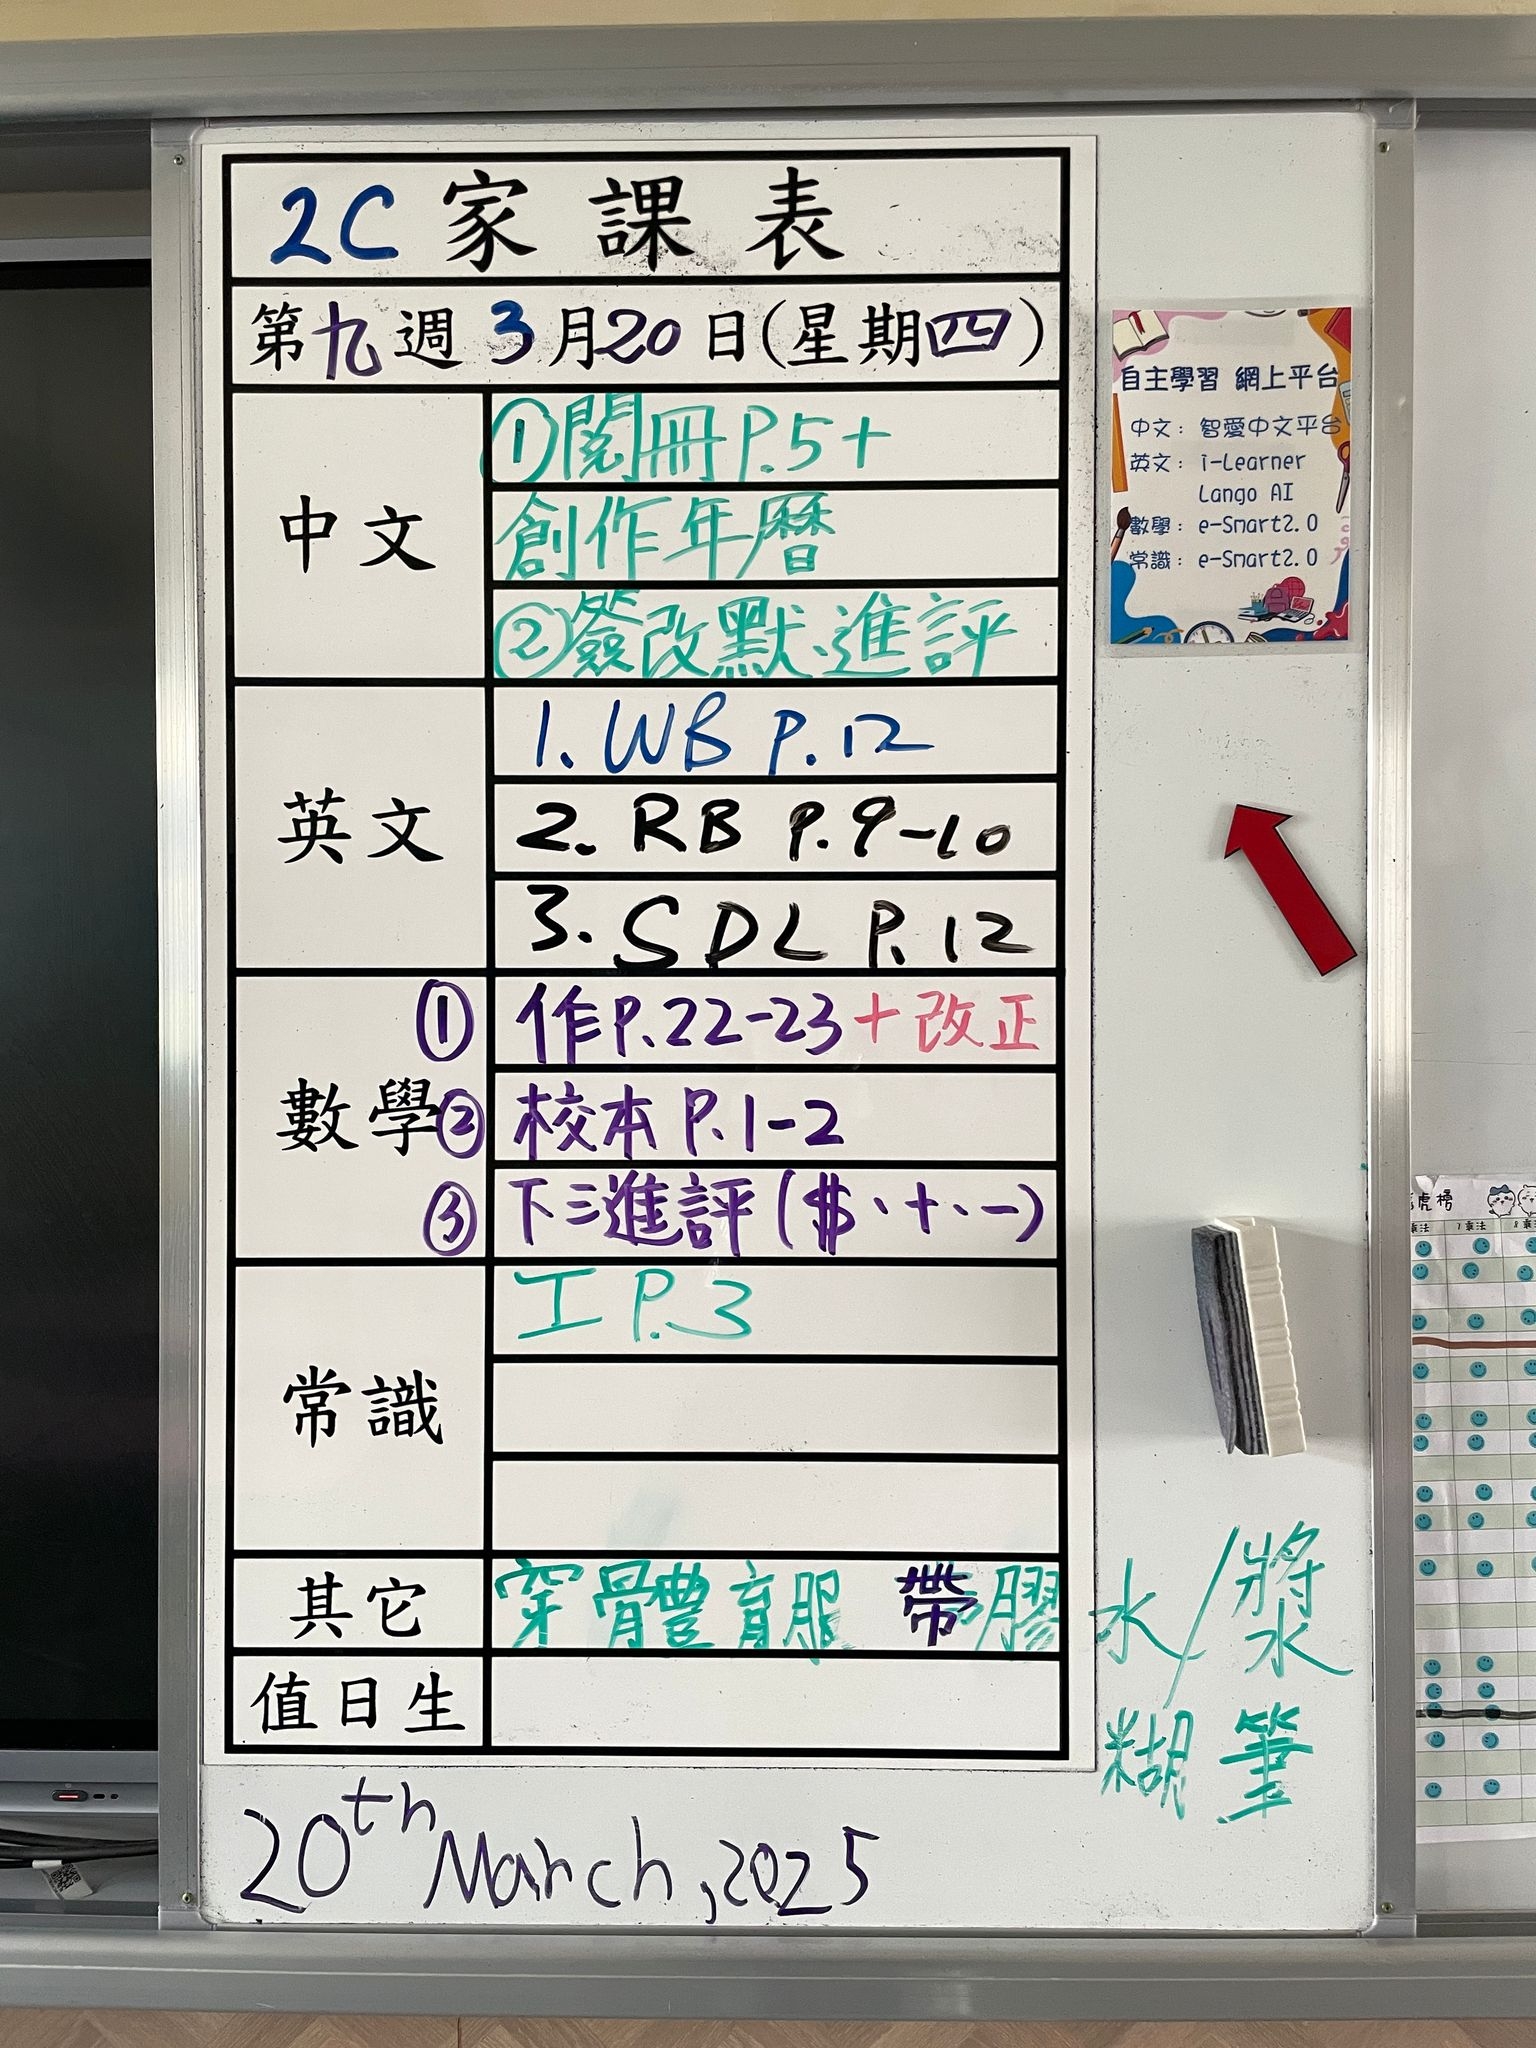 2C 家課表
第九週 3月20日(星期四)
中文
①閱冊 P.5+
創作年曆
②簽改默、進評
英文
1. WB P.12
2. RB P.9-10
3. SDL P.12
數學
① 作P.22-23+改正
② 校本 P.1-2
③ 下三進評($、+、-)
常識
工 P.3
其它
穿體育服 帶膠水/漿
糊筆
值日生
20th March, 2025
自主學習 網上平台
中文：智愛中文平台
英文：i-Learner
Lango AI
數學：e-Smart2.0
常識：e-Smart2.0
虎榜
7乘法